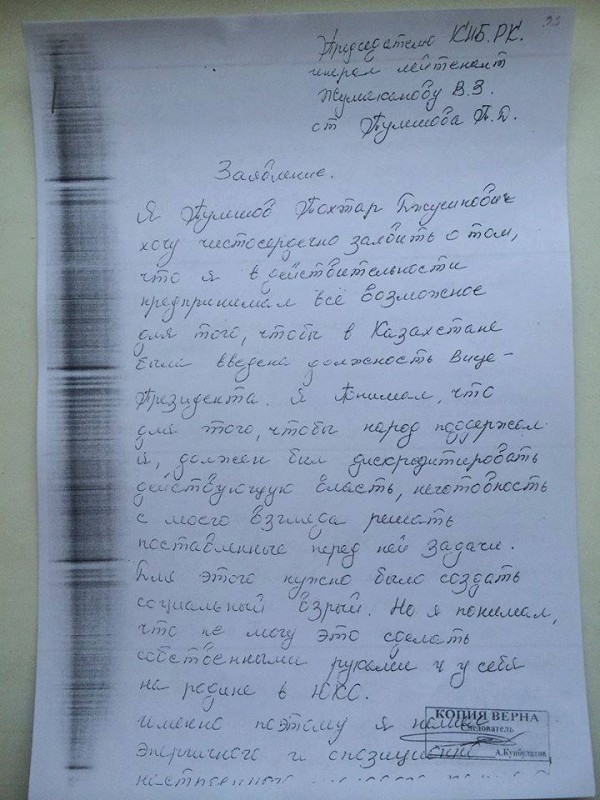 Председателю КНБ.РК.
генерал лейтенант
Жумаканову В.З.
от Тулешова Т.Д.
Заявление.
Я Тулешов Тохтар
хочу чистосердечно заявить о том,
что я в действительности
предпринимал всё возможное
для того, чтобы в Казахстане
была введена должность Вице-
Президента. Я понимал, что
для того, чтобы народ поддержал
я, должен был дискредитировать
действующую власть, неготовность
с моего взгляда решать
поставленные перед ней задачи.
Для этого нужно было создать
социальный взрыв. Но я понимал,
что не могу это сделать
собственными руками и у себя
на родине в ЮКО.
Именно поэтому я
энергичного и
КОПИЯ ВЕРНА
Следователь
А.Кунбулатов